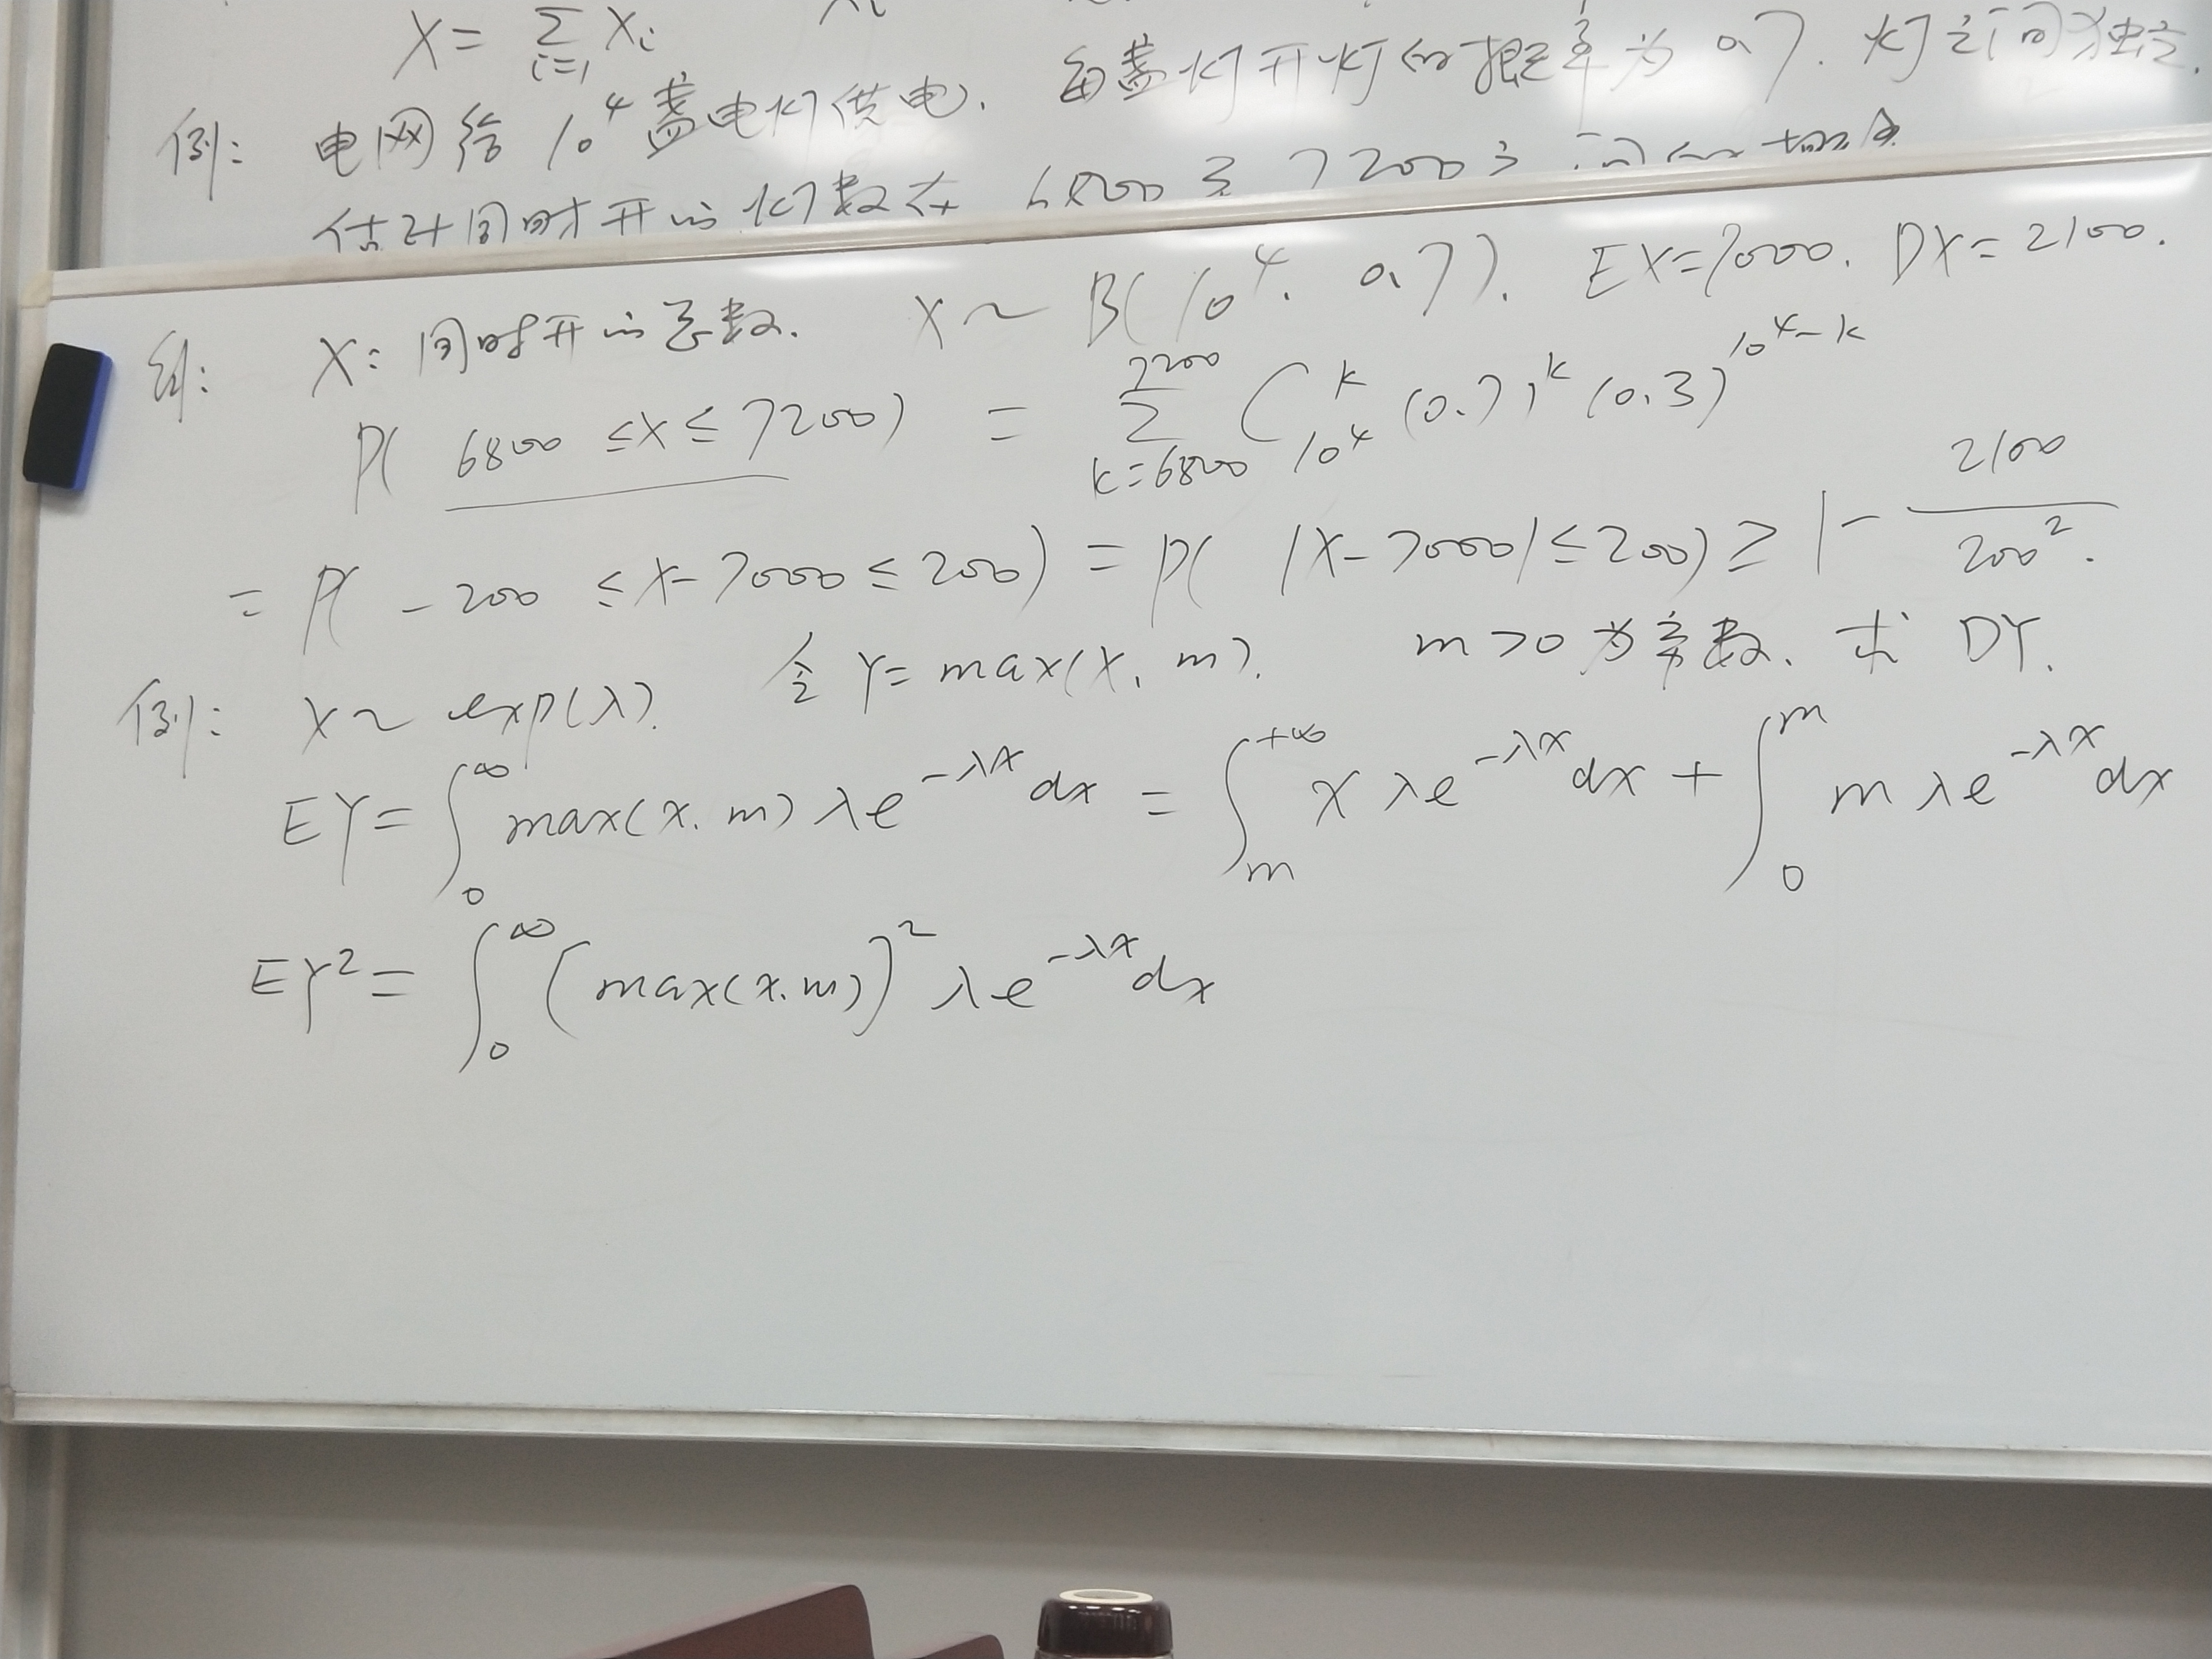 X = ∑_{i=1} X_i
例: 电网给 10^4 盏电灯供电. 每盏灯开灯的概率为 0.7. 灯之间独立.
估计同时开的灯数在 6800 至 7200 之间的概率
解: X: 同时开的总数. X ~ B(10^4, 0.7). EX=7000. DX=2100.
P( 6800 ≤X≤ 7200) = ∑_{k=6800}^{7200} C_{10^4}^k (0.7)^k (0.3)^{10^4-k}
= P( -200 ≤X-7000≤ 200) = P( |X-7000|≤200) ≥ 1 - 2100/200^2.
例: X~ exp(λ). 令 Y= max(X, m). m>0 为常数. 求 DY.
EY= ∫_0^∞ max(x, m) λe^{-λx} dx = ∫_m^{+∞} x λe^{-λx} dx + ∫_0^m m λe^{-λx} dx
EY^2= ∫_0^∞ (max(x, m))^2 λe^{-λx} dx